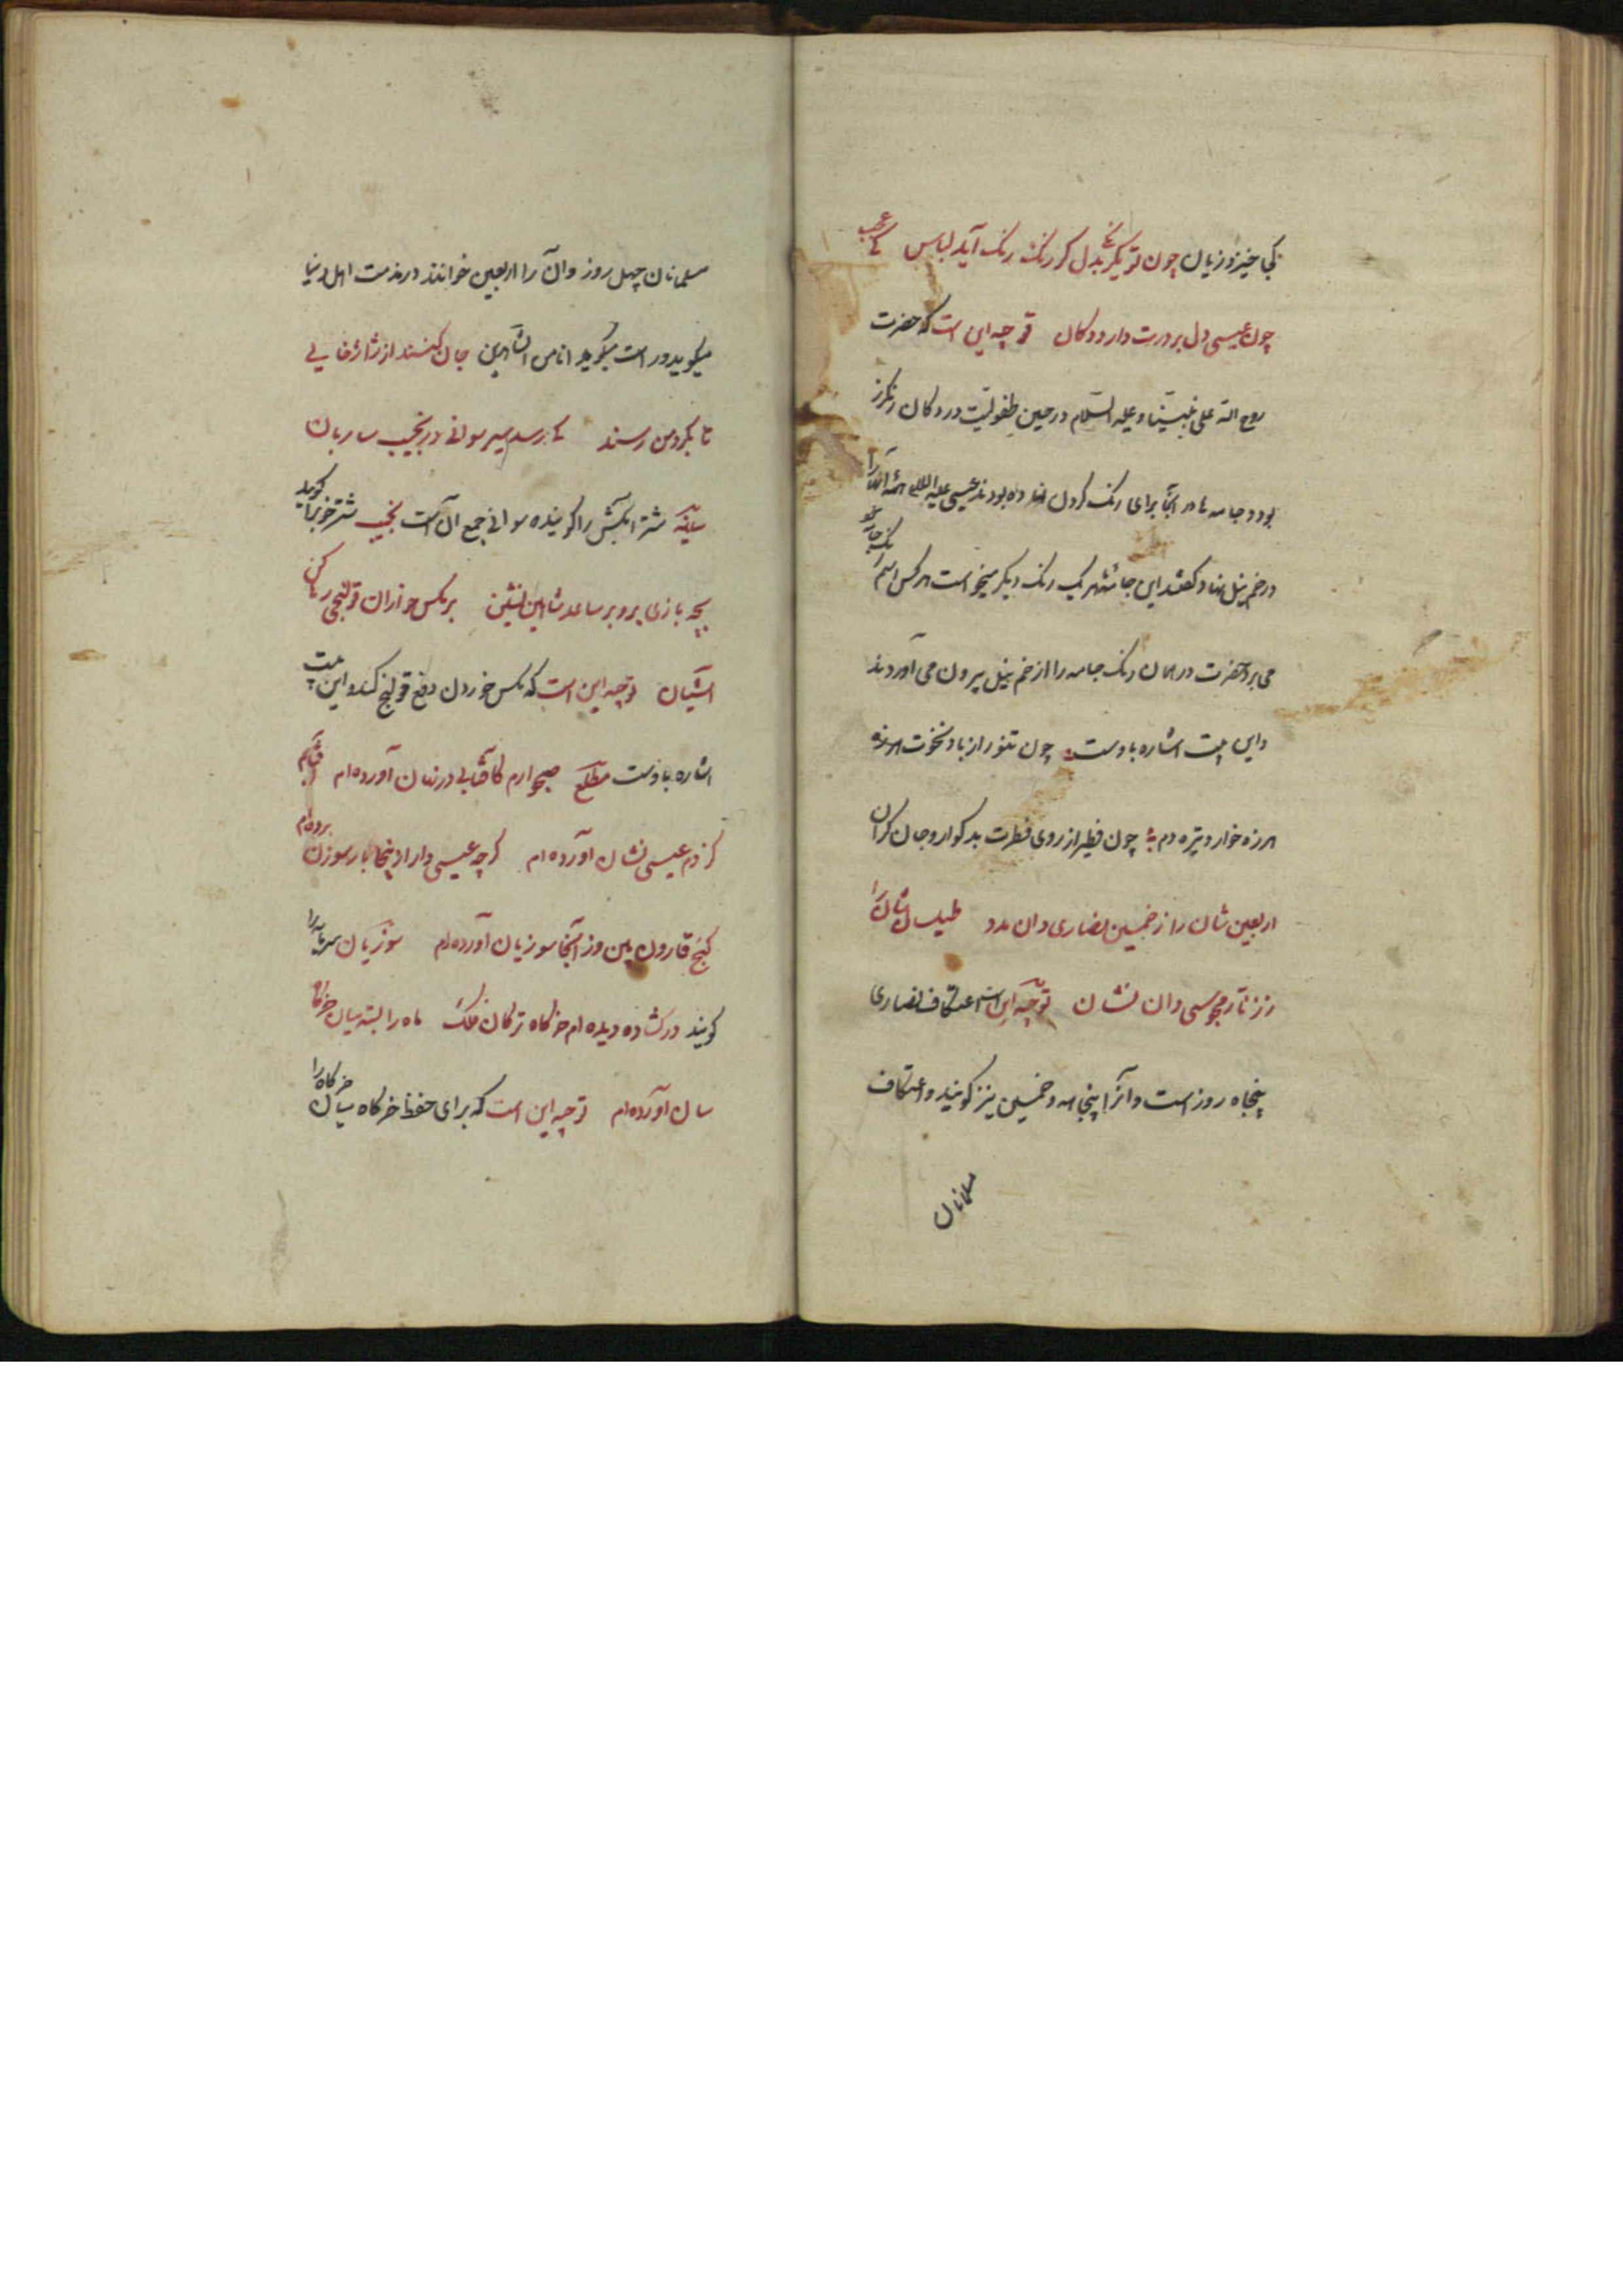 کی خیزد زیان چون تو یکرنگی بدل گر رنگ رنگ آید لباس کی عجب
چون عیسی دل بر درت دارد دکان توجیه این است که حضرت
روح الله علی نبینا و علیه السلام در حین طفولیت در دکان رنگرز
بود و جامه ها در آنجا برای رنگ کردن نهاده بودند عیسی علیه السلام همه آنها را
در خم نیل نهاد گفتند این جامها هر یک رنگ دیگر میخواست هر کس اسم رنگ جامه
می برد حضرت در همان رنگ جامه را از خم نیل بیرون می آوردند
و این بیت اشاره باوست چون تنور از باد نخوت هرزه
هرزه خوار و تیره دم چون فطیر از روی فطرت بد گوار و جان گران
اربعین شان را ز خمسین نصاری دان مدد طیلسان شان را
ز زنار مجوسی دان نشان توجیه این است اعتکاف نصاری
پنجاه روز است و آنرا پنجاهه و خمسین نیز گویند و اعتکاف
مسلمانان
مسلمانان چهل روز و آن را اربعین خوانند در مذمت اهل دنیا
میگوید و راست میگوید انا من الشاهدین جان کنند از ژاژخایی
تا بگرد من رسند کی رسد سیر سوانی در نجیب ساربان
سانیه شتر آبکش را گویند و سوانی جمع آن است نجیب شتر خوب را گویند
بچه بازی برو بر ساعد شاهین نشین بر مگس خواران قولنجی رها کن
آشیان توجیه این است که مگس خوردن دفع قولنج کند و این بیت
اشاره باوست مطلع صبحوارم کافتابی در نهان آورده ام آفتابم
کز دم عیسی نشان آورده ام گرچه عیسی وار ازینجا بار سوزن برده ام
گنج قارون بین وز آنجا سوزیان آورده ام سوزیان سرمایه را
گویند در گشاده دیده ام خرگاه ترکان فلک ماه را بسته میان خرگاه
سان آورده ام توجیه این است که برای حفظ خرگاه میان خرگاه را